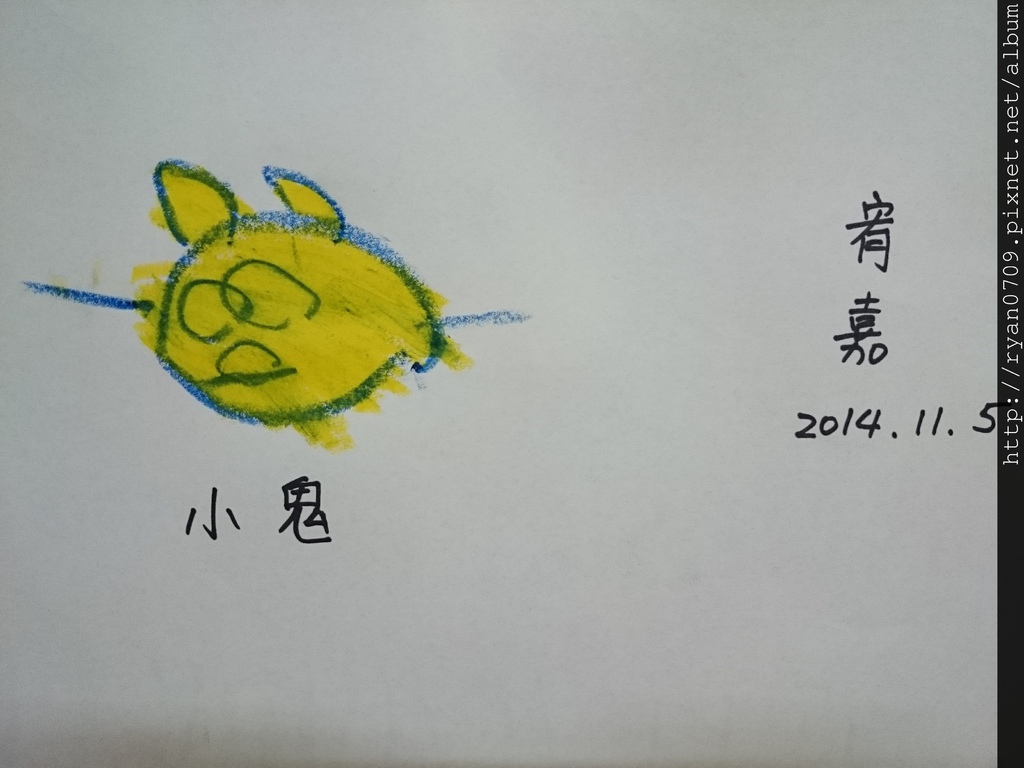 小鬼
宥
嘉
2014.11.5
http://ryan0709.pixnet.net/album